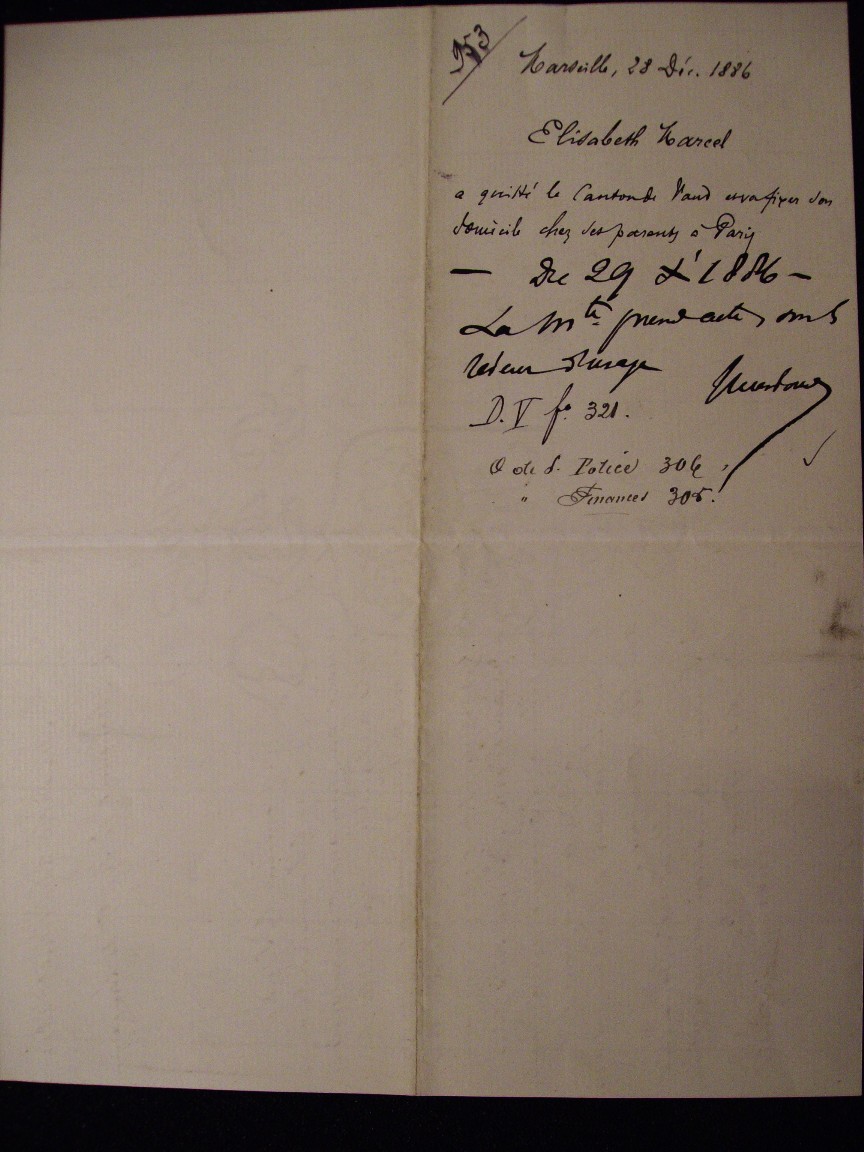 953
Marseille, 28 Déc. 1886
Elisabeth Marcel
a quitté le Canton de Vaud et va fixer son
domicile chez ses parents à Paris
— Du 29 Xᵉ 1886 —
La Mté prend acte, sous
D. V fº 321.
O de d. Police 306,
" Finances 305.